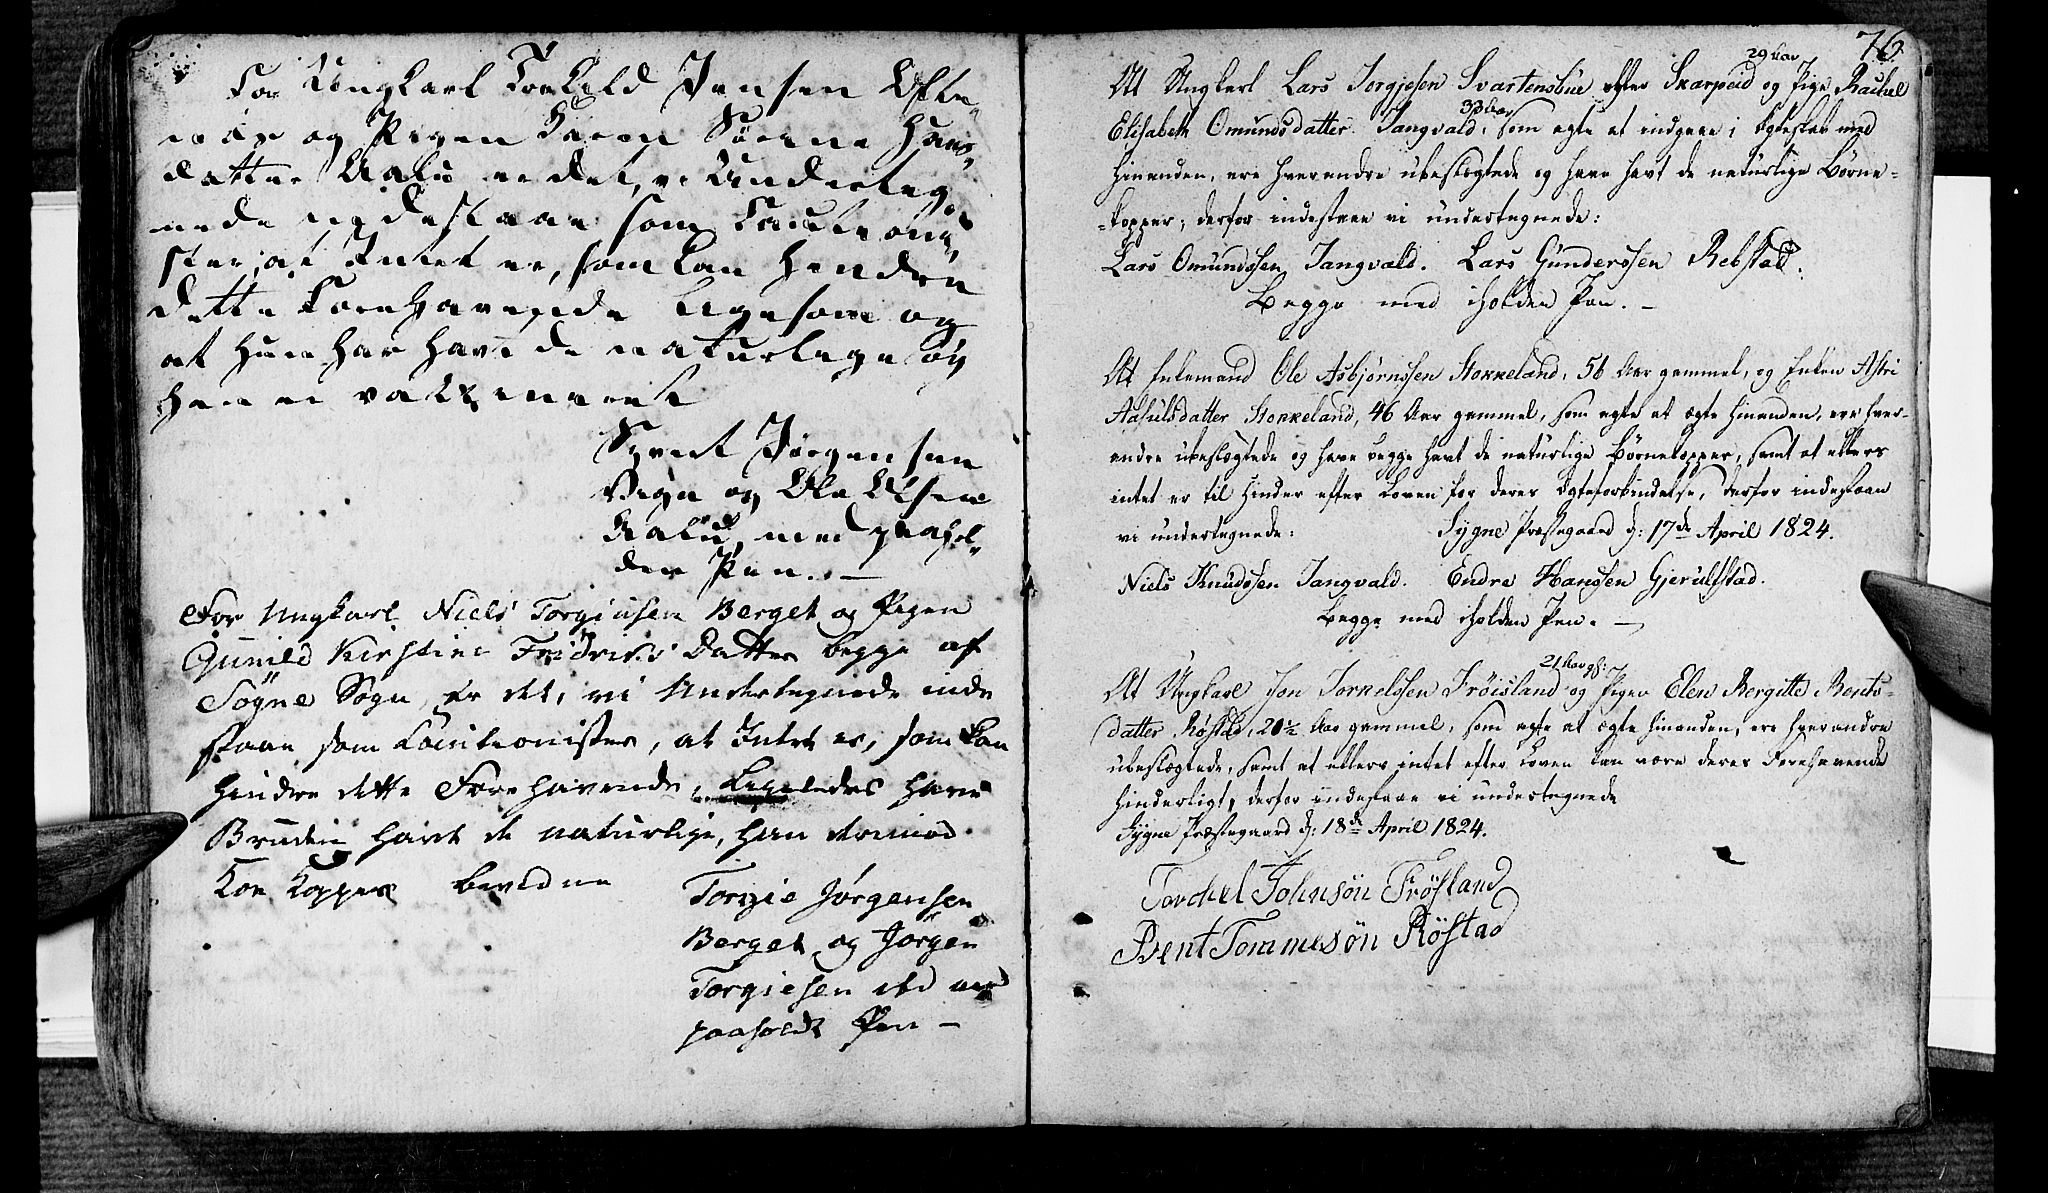 For Ungkarl Torkild Jensen Ofte-
næs og Pigen Karen Sørine Hans-
datter Aalu er det, vi Underteg-
nede indestaae som Cautioni-
ster, at Intet er, som kan hindre
dette Forehavende ligesom og
at hun har havt de naturlige og
han er vakzineret
Syvert Jørgensen
Vega og Ole Olsen
Aalu, med paahol-
den Pen. —
For Ungkarl Niels Torgiusen Berget og Pigen
Gunild Kirstine Fridriks Datter begge af
Søgne Sogn, er det, vi Undertegnede inde
staae som Cautionister, at Intet er, som kan
hindre dette Forehavende, Ligeledes have
Bruden havt de naturlige, han derimod
Koe Kopper bevidne
Torgie Jørgensen
Berget og Jørgen
Torgiesen ibd med
paaholdt Pen —
76.
29 Aar
At Ungkarl Lars Torgjesen Svartensbue efter Skarpeid og Pige Rachel
33 Aar
Elisabeth Omundsdatter Tangvald, som agte at indgaae i Ægteskab med
hinanden, ere hverandre ubeslægtede og have havt de naturlige Børne-
-kopper; derfor indestaae vi undertegnede:
Lars Omundsen Tangvald. Lars Gundersen Rebstad.
Begge med iholden Pen. —
At Enkemand Ole Asbjørnssen Stokkeland, 56 Aar gammel, og Enken Astri
Aasulsdatter Stokkeland, 46 Aar gammel, som agte at ægte hinanden, ere hver-
andre ubeslægtede og have begge havt de naturlige Børnekopper, samt at ellers
intet er til Hinder efter Loven for deres Ægteforbindelse, derfor indestaae
vi undertegnede: Sygne Præstegaard d: 17de April 1824.
Niels Knudsen Tangvald. Endre Hansen Gjerulfstad.
Begge med iholden Pen. —
21 Aar gl:
At Ungkarl Jon Torkelssen Trøisland og Pigen Elen Bergitte Bents-
datter Røstad, 20½ Aar gammel, som agte at ægte hinanden, ere hverandre
ubeslægtede, samt at ellers intet efter Loven kan være deres Forehavende
hinderligt, derfor indestaae vi undertegnede
Sygne Præstegaard d: 18de April 1824.
Torchel Johnsøn Trøsland
Bent Tommesøn Røstad